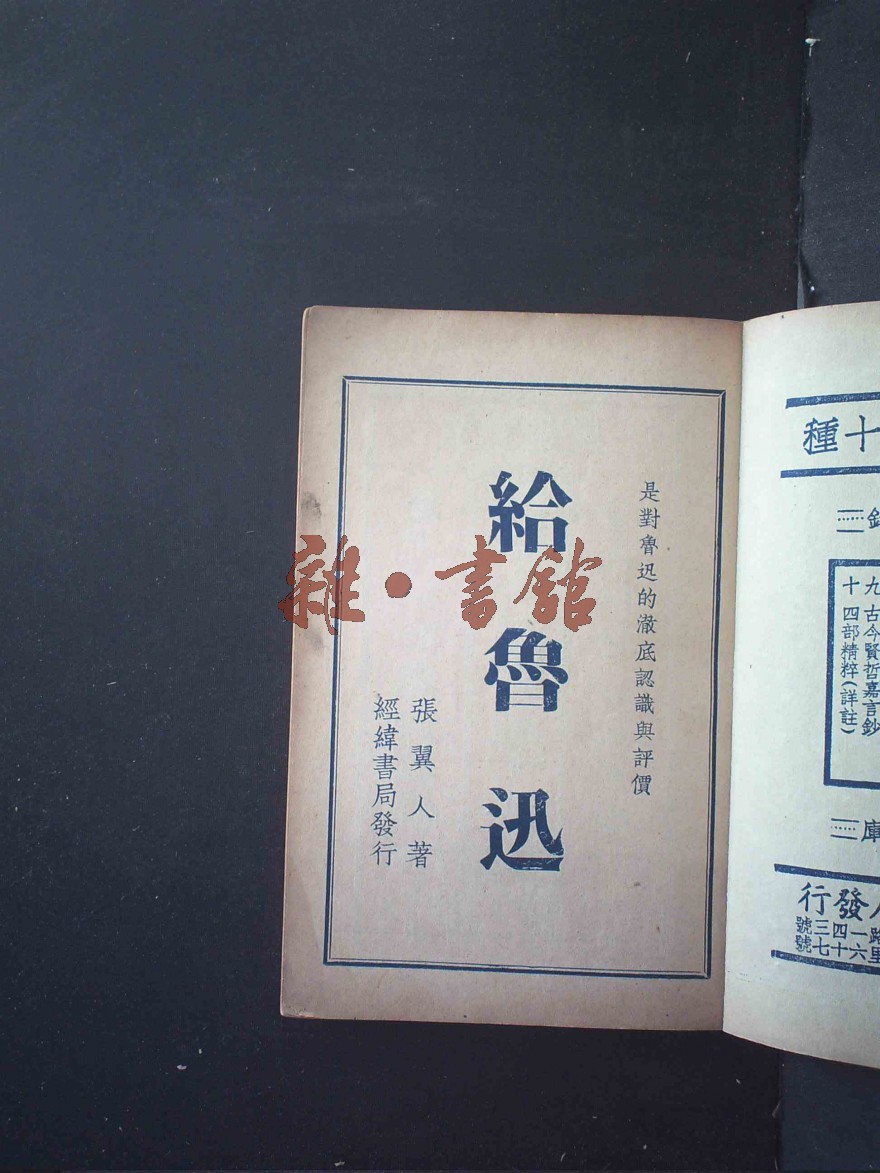 是對魯迅的澈底認識與評價
給魯迅
張翼人著
經緯書局發行
雜·書館
十種
九 古今賢哲嘉言鈔
十 四部精粹(詳註)
庫
人發行
路一四三號
里六十七號